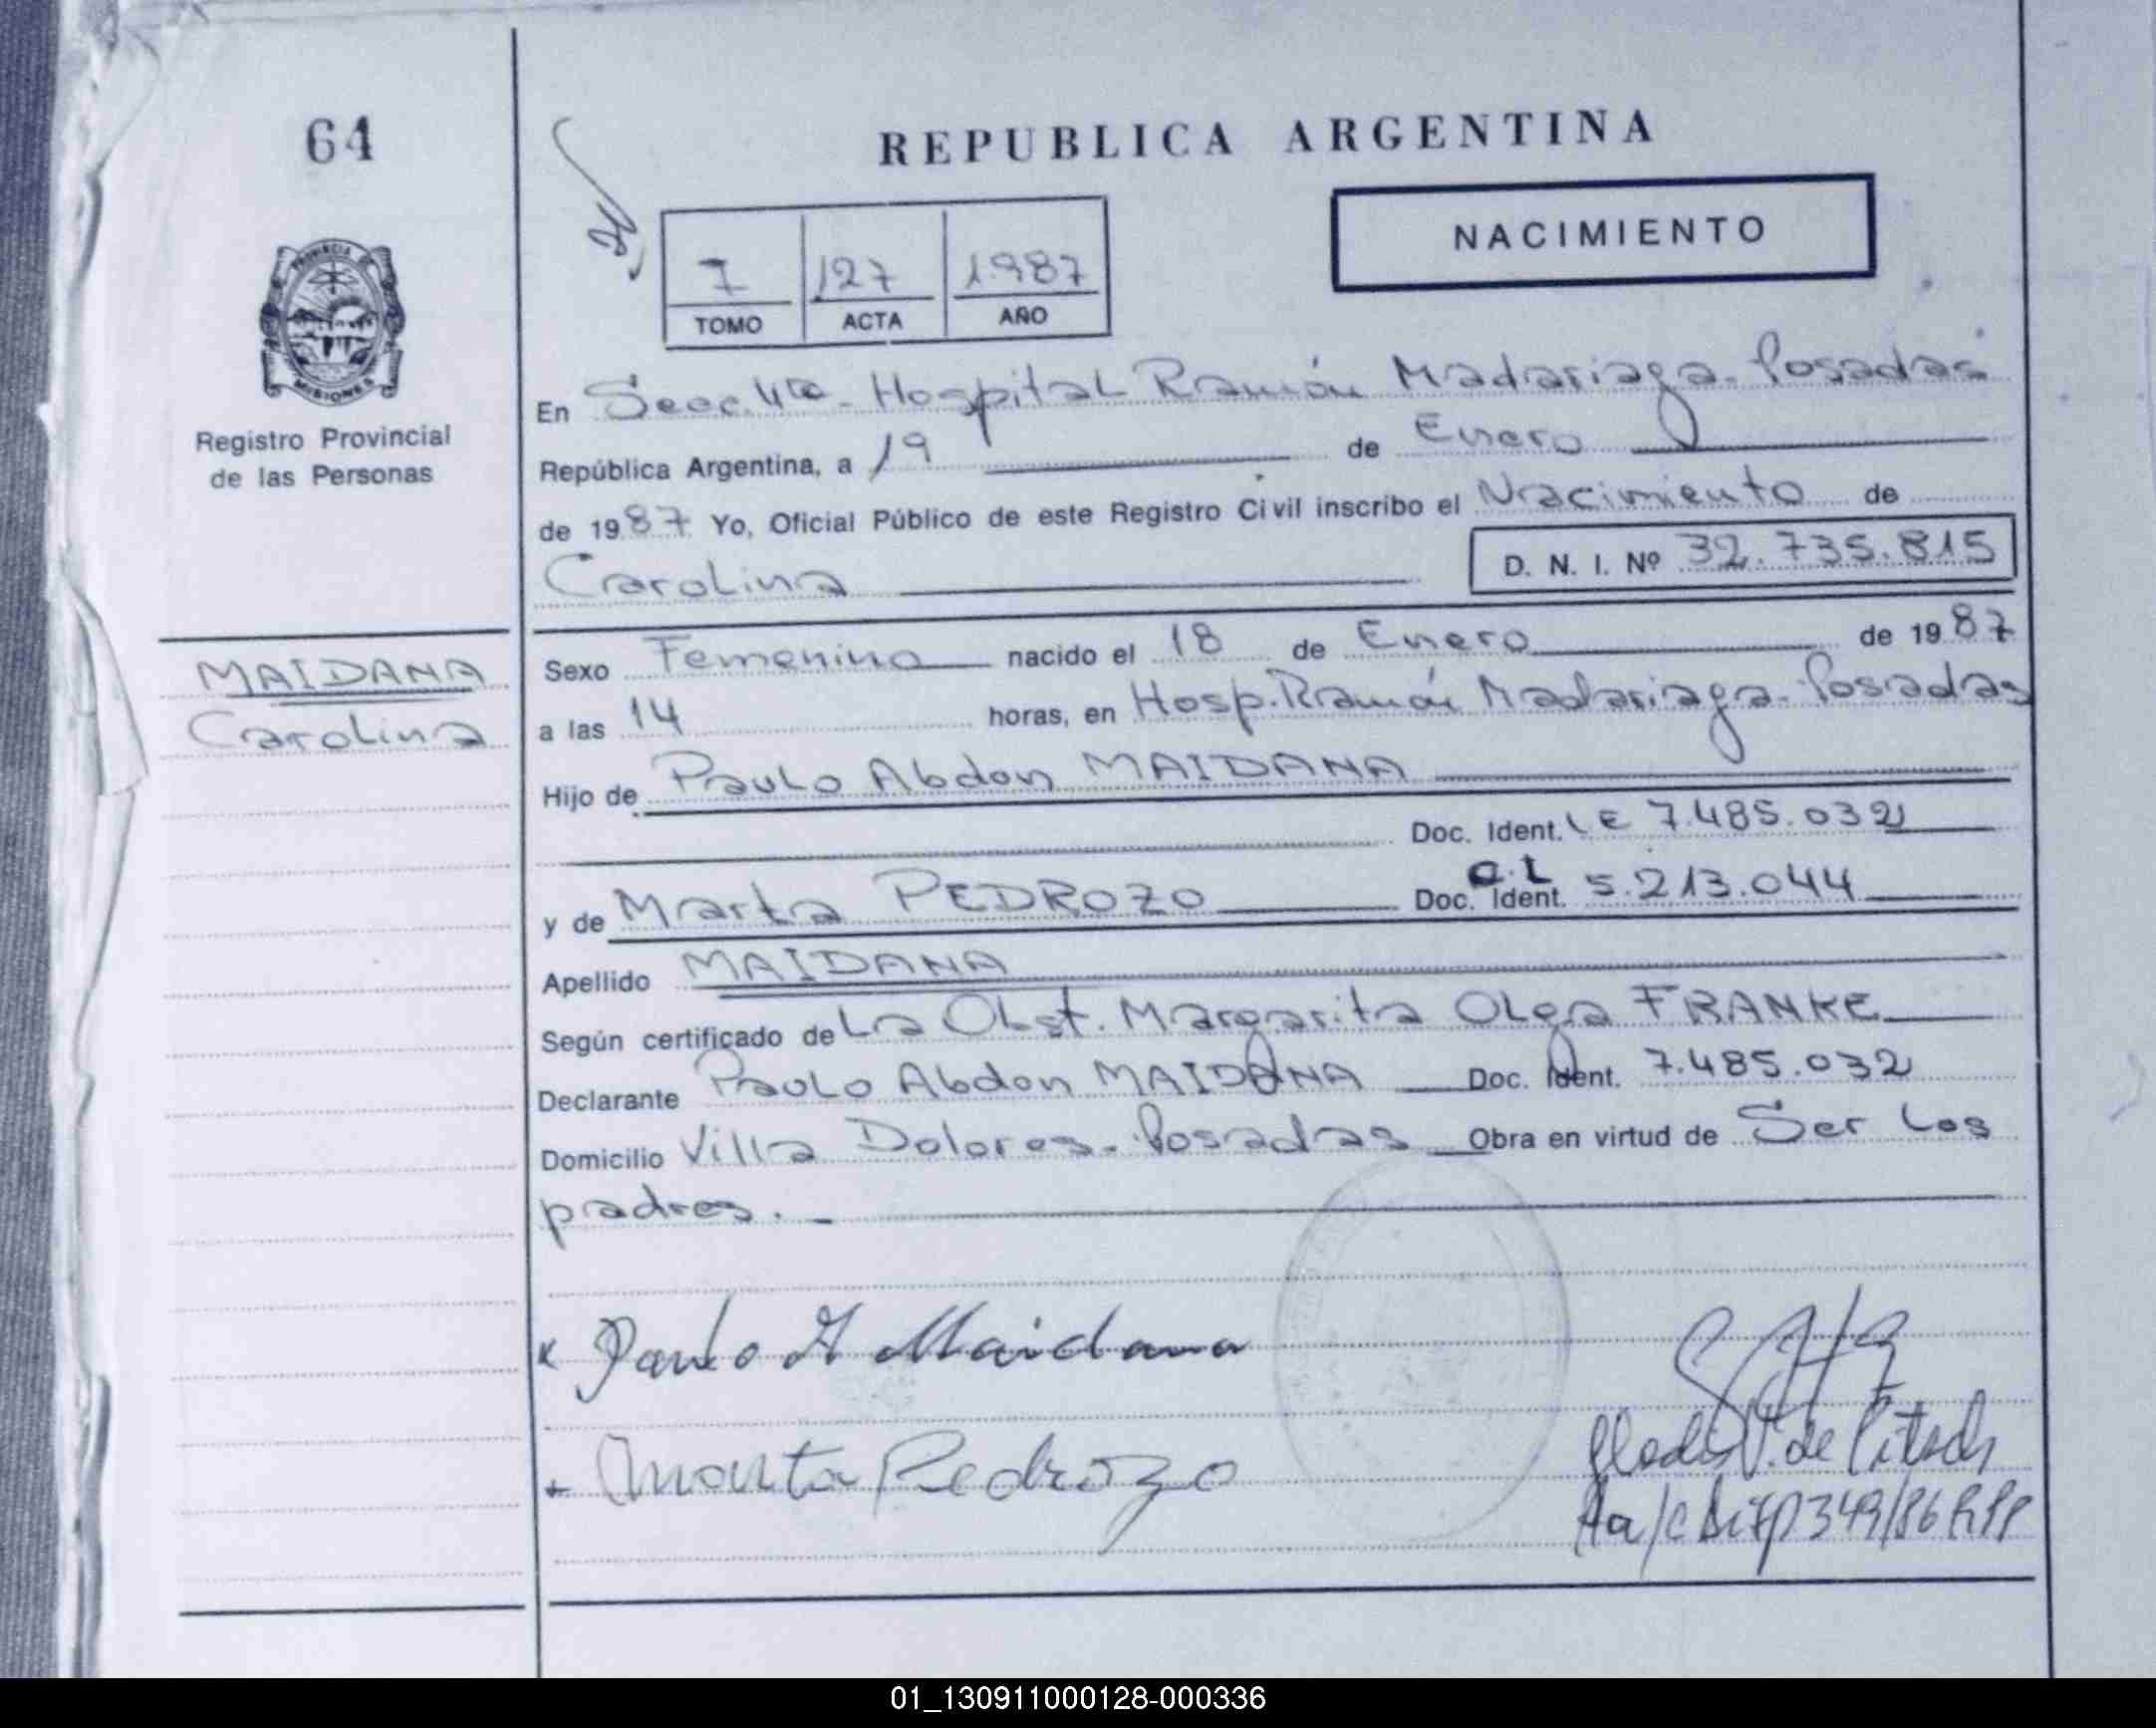 64
REPUBLICA ARGENTINA
NACIMIENTO
7 127 1.987
TOMO ACTA AÑO
PROVINCIA DE
MISIONES
Registro Provincial
de las Personas
En Secc. 4ta - Hospital Ramón Madariaga - Posadas
República Argentina, a 19 de Enero
de 1987 Yo, Oficial Público de este Registro Civil inscribo el Nacimiento de
Carolina D. N. I. Nº 32.735.815
MAIDANA
Carolina
Sexo Femenino nacido el 18 de Enero de 1987
a las 14 horas, en Hosp. Ramón Madariaga - Posadas
Hijo de Paulo Abdon MAIDANA
Doc. Ident. LE 7.485.032
C.I.
y de Marta PEDROZO Doc. Ident. 5.213.044
Apellido MAIDANA
Según certificado de La Obst. Margarita Olga FRANKE
Declarante Paulo Abdon MAIDANA Doc. Ident. 7.485.032
Domicilio Villa Dolores - Posadas Obra en virtud de Ser los
padres. -
x Paulo A Maidana
x Marta Pedrozo
V. de
a/c Disp 349/86 RPP
01_130911000128-000336